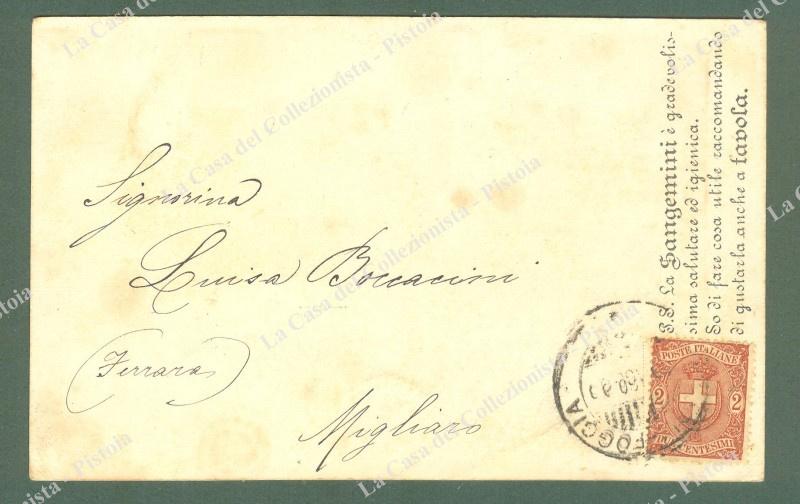 Signorina
Luisa Boccacini
(Ferrara)
Migliaro
P.S. La Sangemini è gradevolis-
sima salutare ed igienica.
So di fare cosa utile raccomandando
di gustarla anche a tavola.
POSTE ITALIANE
2 2
DUE CENTESIMI
FOGGIA
La Casa del Collezionista - Pistoia